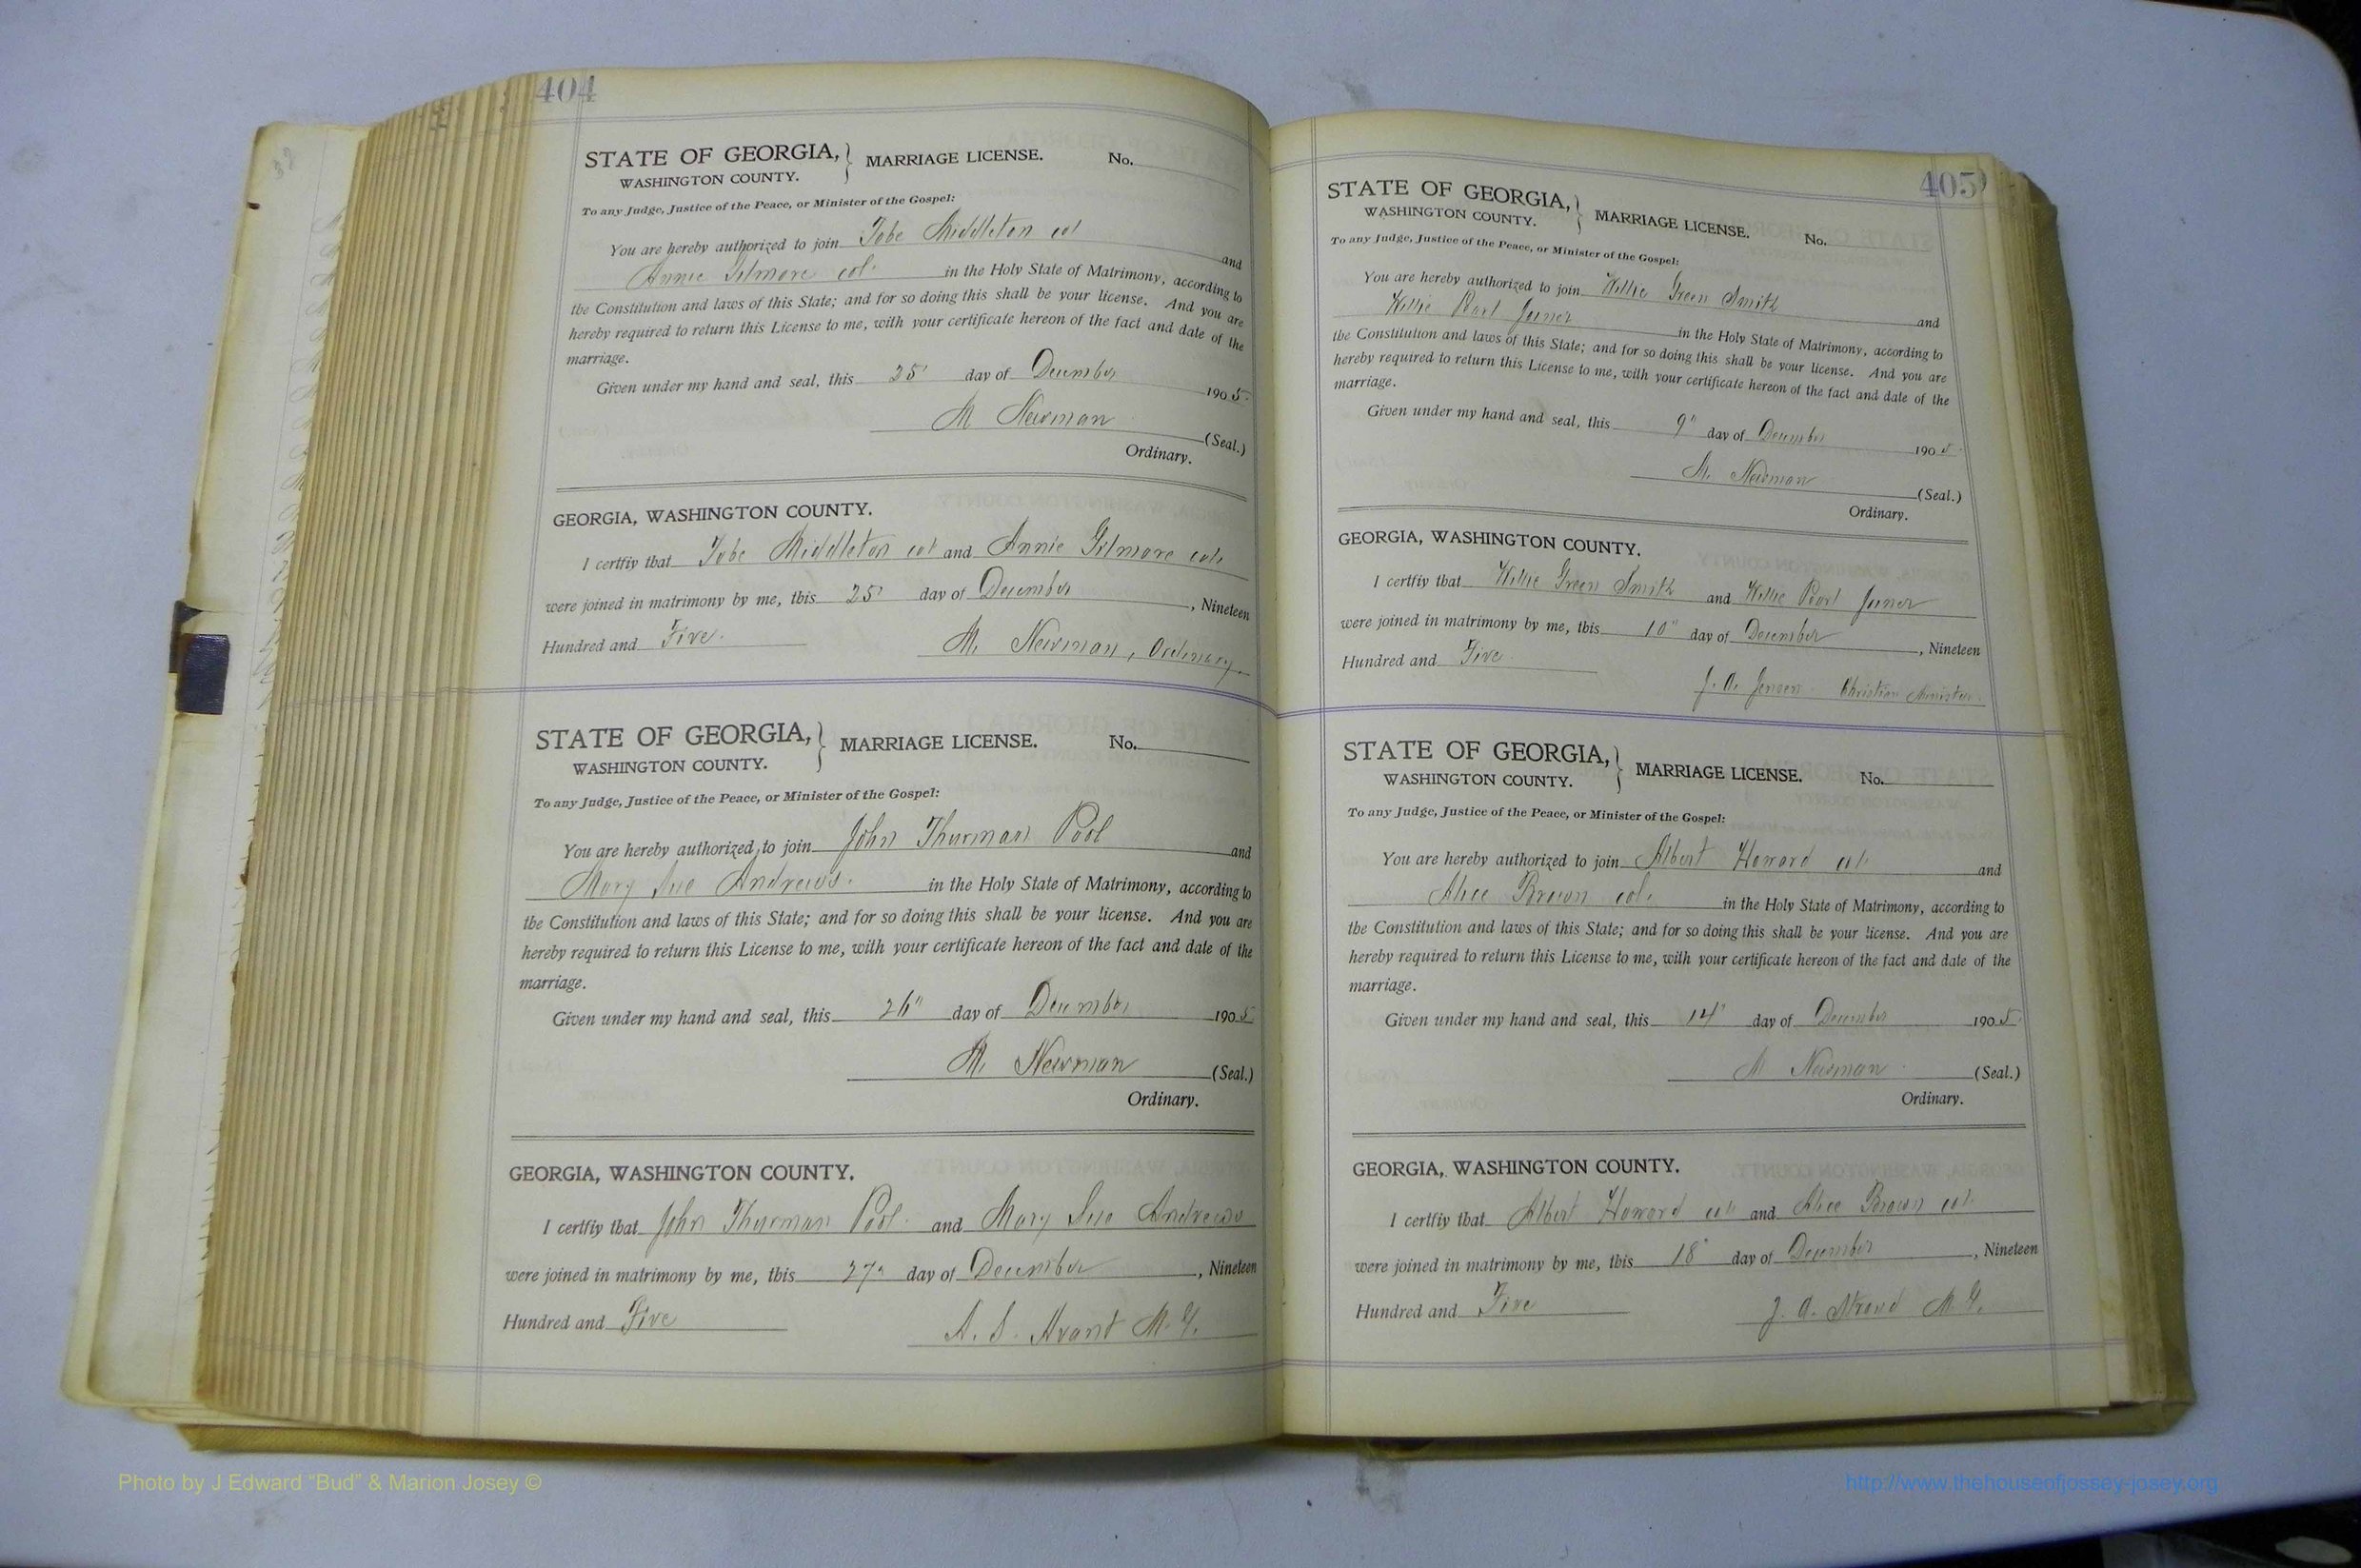 404
STATE OF GEORGIA, } MARRIAGE LICENSE. No.
WASHINGTON COUNTY.
To any Judge, Justice of the Peace, or Minister of the Gospel:
You are hereby authorized to join Tobe Middleton col and
Annie Gilmore col. in the Holy State of Matrimony, according to
the Constitution and laws of this State; and for so doing this shall be your license. And you are
hereby required to return this License to me, with your certificate hereon of the fact and date of the
marriage.
Given under my hand and seal, this 25" day of December 1905.
M Newman (Seal.)
Ordinary.
GEORGIA, WASHINGTON COUNTY.
I certfiy that Tobe Middleton col and Annie Gilmore col.
were joined in matrimony by me, this 25" day of December, Nineteen
Hundred and Five. M. Newman, Ordinary
STATE OF GEORGIA, } MARRIAGE LICENSE. No.
WASHINGTON COUNTY.
To any Judge, Justice of the Peace, or Minister of the Gospel:
You are hereby authorized to join John Thurman Pool and
Mary Sue Andrews. in the Holy State of Matrimony, according to
the Constitution and laws of this State; and for so doing this shall be your license. And you are
hereby required to return this License to me, with your certificate hereon of the fact and date of the
marriage.
Given under my hand and seal, this 26" day of December 1905.
M. Newman (Seal.)
Ordinary.
GEORGIA, WASHINGTON COUNTY.
I certfiy that John Thurman Pool. and Mary Sue Andrews
were joined in matrimony by me, this 27" day of December, Nineteen
Hundred and Five A. S. Avant M.G.
405
STATE OF GEORGIA, } MARRIAGE LICENSE. No.
WASHINGTON COUNTY.
To any Judge, Justice of the Peace, or Minister of the Gospel:
You are hereby authorized to join Willie Green Smith and
Willie Pearl Joiner in the Holy State of Matrimony, according to
the Constitution and laws of this State; and for so doing this shall be your license. And you are
hereby required to return this License to me, with your certificate hereon of the fact and date of the
marriage.
Given under my hand and seal, this 9" day of December 1905.
M. Newman (Seal.)
Ordinary.
GEORGIA, WASHINGTON COUNTY.
I certfiy that Willie Green Smith and Willie Pearl Joiner
were joined in matrimony by me, this 10" day of December, Nineteen
Hundred and Five. J. A. Christian Minister.
STATE OF GEORGIA, } MARRIAGE LICENSE. No.
WASHINGTON COUNTY.
To any Judge, Justice of the Peace, or Minister of the Gospel:
You are hereby authorized to join Albert Howard col. and
Alice Brown col. in the Holy State of Matrimony, according to
the Constitution and laws of this State; and for so doing this shall be your license. And you are
hereby required to return this License to me, with your certificate hereon of the fact and date of the
marriage.
Given under my hand and seal, this 14" day of December 1905.
M Newman (Seal.)
Ordinary.
GEORGIA, WASHINGTON COUNTY.
I certfiy that Albert Howard col and Alice Brown col
were joined in matrimony by me, this 18" day of December, Nineteen
Hundred and Five J. A. Stroud M.G.
Photo by J Edward "Bud" & Marion Josey ©
http://www.thehouseofjossey-josey.org